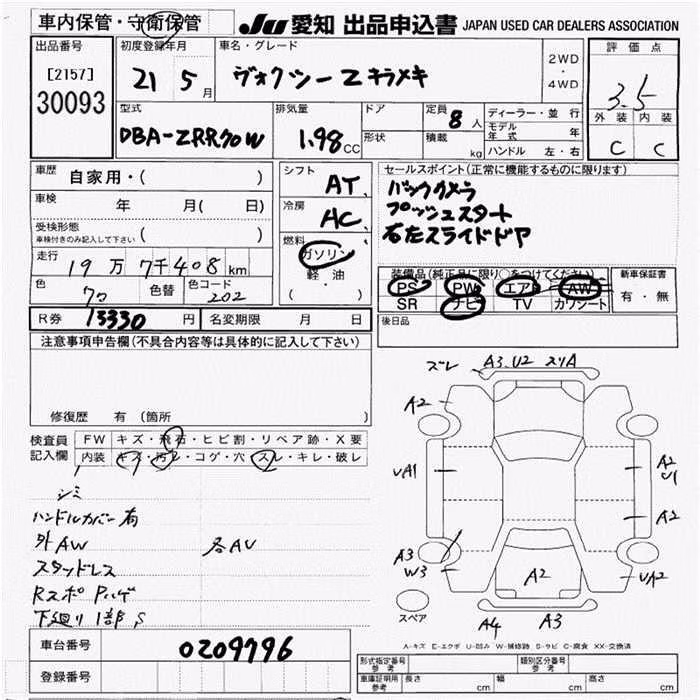 車内保管・守衛保管
JU 愛知 出品申込書 JAPAN USED CAR DEALERS ASSOCIATION
出品番号
[2157]
30093
初度登録年月
21 5 月
車名・グレード
ヴォクシーZキラメキ
2WD
・
4WD
評価点
3.5
外装 内装
C C
型式
DBA-ZRR70W
排気量
1.98 CC
ドア
形状
定員 8 人
積載 kg
ディーラー・並行
モデル年式 年
ハンドル 左・右
車歴
自家用・( )
車検
年 月( 日)
受検形態
車検付きのみ記入して下さい ( )
走行
19万7千408km
色 色替 色コード
202
シフト
AT
冷房
AC
燃料
ガソリン
軽・油
( )
セールスポイント(正常に機能するものに限ります)
バックカメラ
プッシュスタート
右左スライドドア
装備品(純正品に限り○をつけてください)
PS PW エア AW
SR ナビ TV カワシート
新車保証書
有・無
後日品
R券 13330 円 名変期限 月 日
注意事項申告欄(不具合内容等は具体的に記入して下さい)
修復歴 有(箇所 )
検査員
記入欄
FW キズ・飛石・ヒビ割・リペア跡・X要
内装 キズ・汚レ・コゲ・穴・スレ・キレ・破レ
シミ
ハンドルカバー有
外AW 各AU
スタッドレス
下廻り1部S
ズレ A3.U2 スリA
A2
UA1
A2
U1
A2
A3
W3
A2
UA2
スペア
A4 A3
A-キズ E-エクボ U-凹み W-補修跡 S-サビ C-腐食 XX-交換済
車台番号
0209796
登録番号
形式指定番号
参考
類別区分番号
参考
車庫証明用
参考
長さ cm 幅 cm 高さ cm